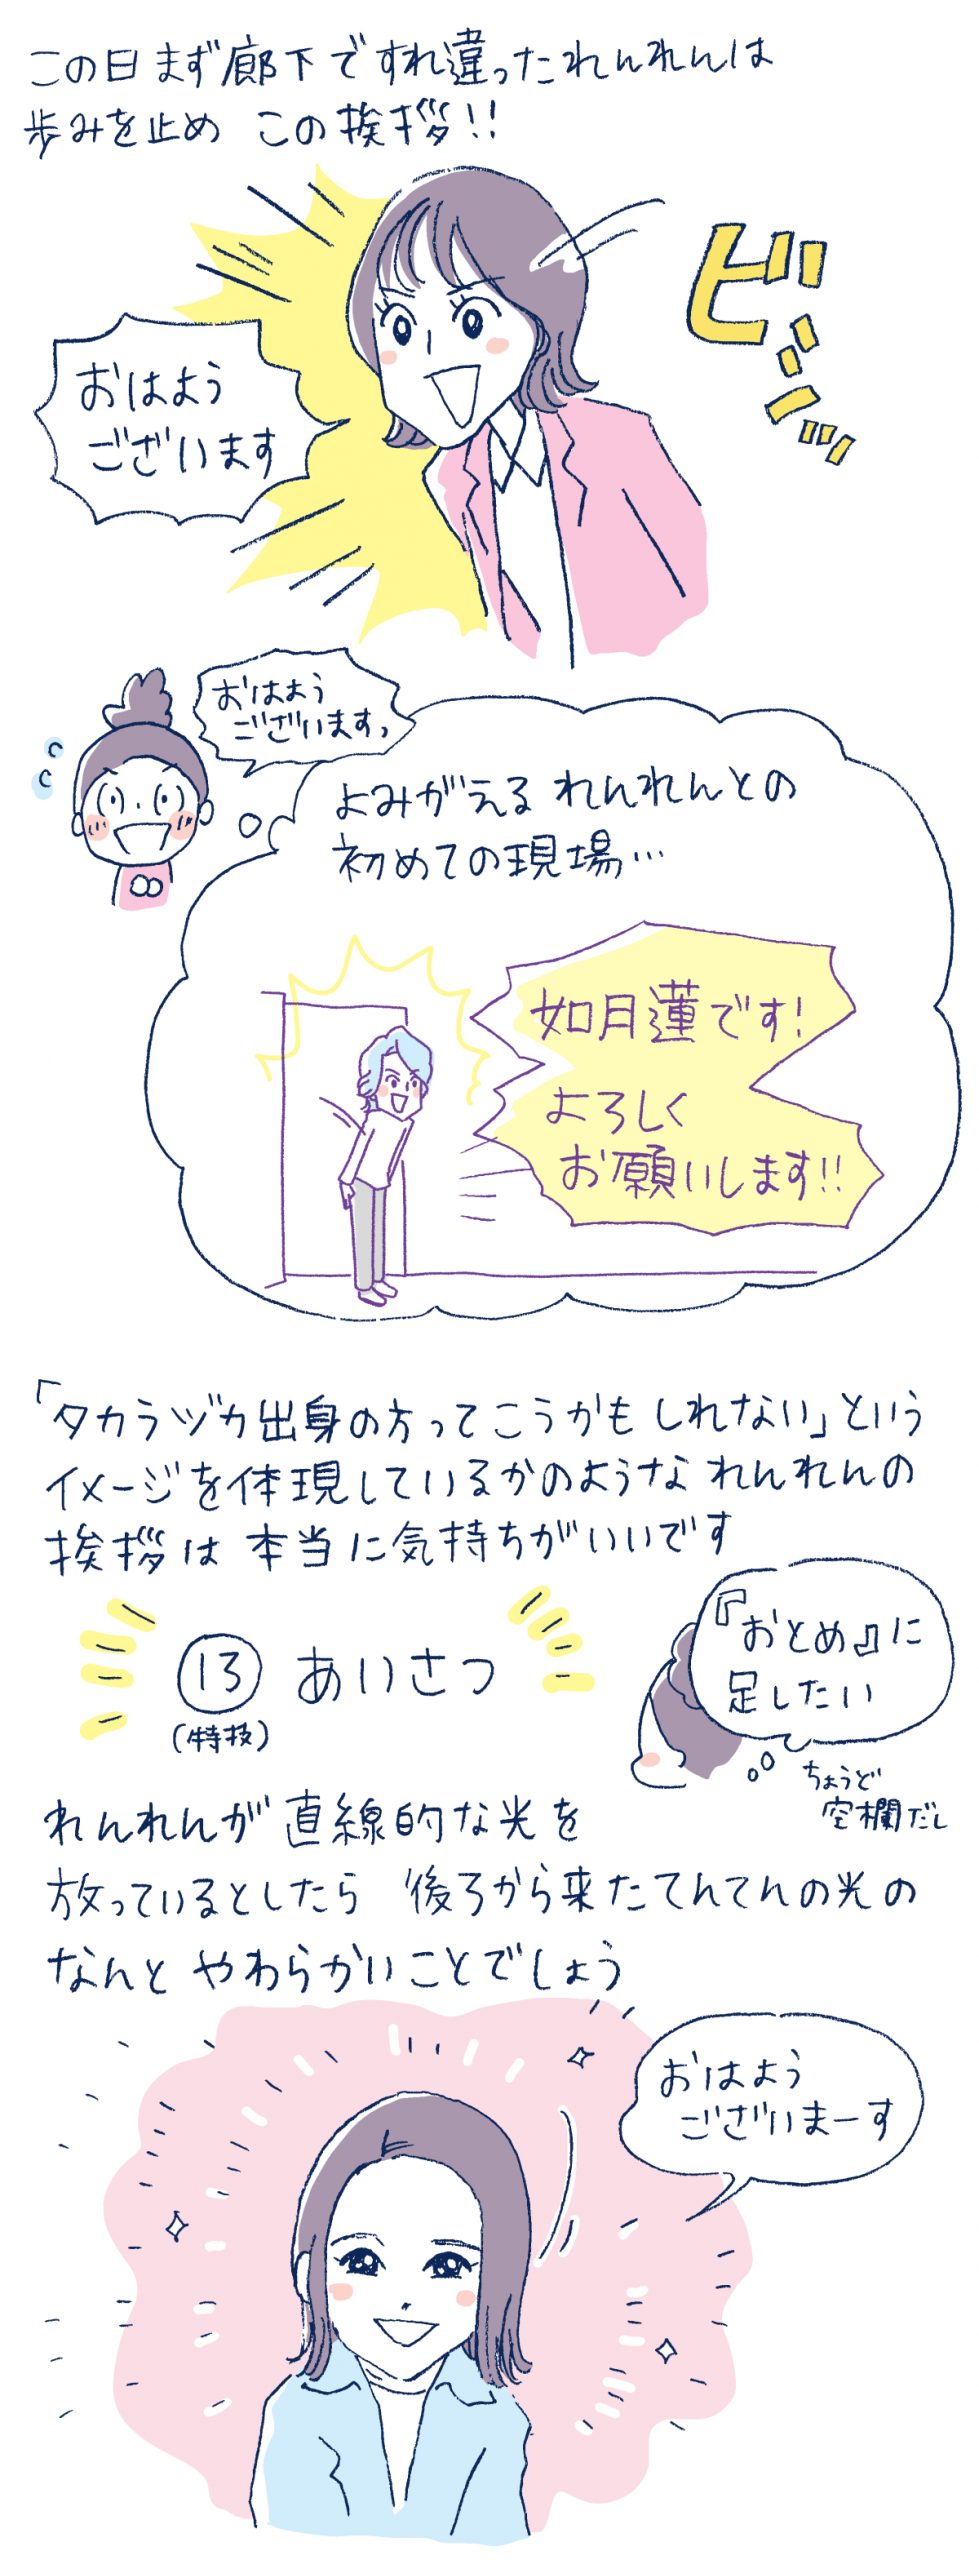 この日まず廊下ですれ違ったれんれんは
歩みを止め この挨拶!!
ビシッ
おはよう
ございます
おはよう
ございますっ
よみがえるれんれんとの
初めての現場…
如月蓮です!
よろしく
お願いします!!
「タカラヅカ出身の方ってこうかもしれない」という
イメージを体現しているかのようなれんれんの
挨拶は本当に気持ちがいいです
⑬ あいさつ
(特技)
『おとめ』に
足したい
ちょうど
空欄だし
れんれんが直線的な光を
放っているとしたら 後ろから来たてんてんの光の
なんとやわらかいことでしょう
おはよう
ございまーす